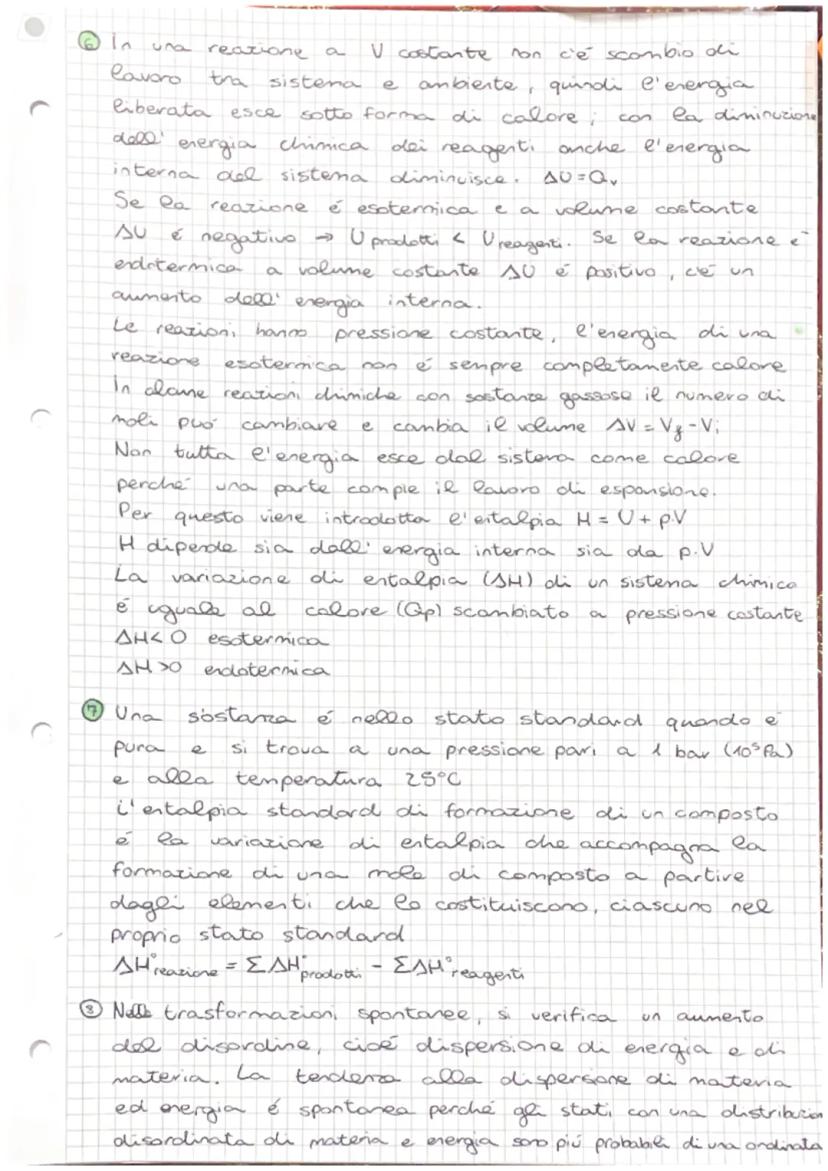 6 In una reazione a V costante non c'é scambio di
lavoro tra sistema e ambiente, quindi l'energia
liberata esce sotto forma di calore; con la diminuzione
dell'energia chimica dei reagenti anche l'energia
interna del sistema diminuisce. ΔU=Qv
Se la reazione é esotermica e a volume costante
ΔU é negativo → U prodotti < U reagenti. Se la reazione é
endotermica a volume costante ΔU é positivo, c'é un
aumento dell'energia interna.
Le reazioni hanno pressione costante, l'energia di una
reazione esotermica non é sempre completamente calore
In alcune reazioni chimiche con sostanze gassose il numero di
moli puó cambiare e cambia il volume ΔV = Vf - Vi
Non tutta l'energia esce dal sistema come calore
perché una parte compie il lavoro di espansione.
Per questo viene introdotta l'entalpia H = U + p.V
H dipende sia dall'energia interna sia da p.V
La variazione di entalpia (ΔH) di un sistema chimico
é uguale al calore (Qp) scambiato a pressione costante
ΔH<0 esotermica
ΔH>0 endotermica
7 Una sostanza é nello stato standard quando é
pura e si trova a una pressione pari a 1 bar (10⁵ Pa)
e alla temperatura 25°C
L'entalpia standard di formazione di un composto
é la variazione di entalpia che accompagna la
formazione di una mole di composto a partire
dagli elementi che lo costituiscono, ciascuno nel
proprio stato standard
ΔH°reazione = ΣΔH°prodotti - ΣΔH°reagenti
8 Nelle trasformazioni spontanee, si verifica un aumento
del disordine, cioé dispersione di energia e di
materia. La tendenza alla dispersione di materia
ed energia é spontanea perché gli stati con una distribuzion
disordinata di materia e energia sono piú probabili di una ordinata